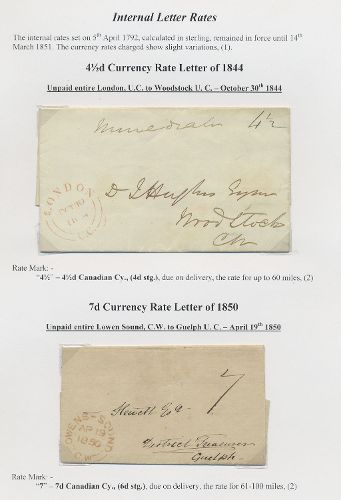 Internal Letter Rates
The internal rates set on 5th April 1792, calculated in sterling, remained in force until 14th
March 1851. The currency rates charged show slight variations, (1).
4½d Currency Rate Letter of 1844
Unpaid entire London, U.C. to Woodstock U. C. – October 30th 1844
4½
LONDON
U.C.
Woodstock
Rate Mark: -
"4½" – 4½d Canadian Cy., (4d stg.), due on delivery, the rate for up to 60 miles, (2)
7d Currency Rate Letter of 1850
Unpaid entire Lowen Sound, C.W. to Guelph U. C. – April 19th 1850
7
OWENS-SOUND
AP 19
1850
C.W.
Hewett Esq
District Treasurer
Guelph
Rate Mark: -
"7" – 7d Canadian Cy., (6d stg.), due on delivery, the rate for 61-100 miles, (2)